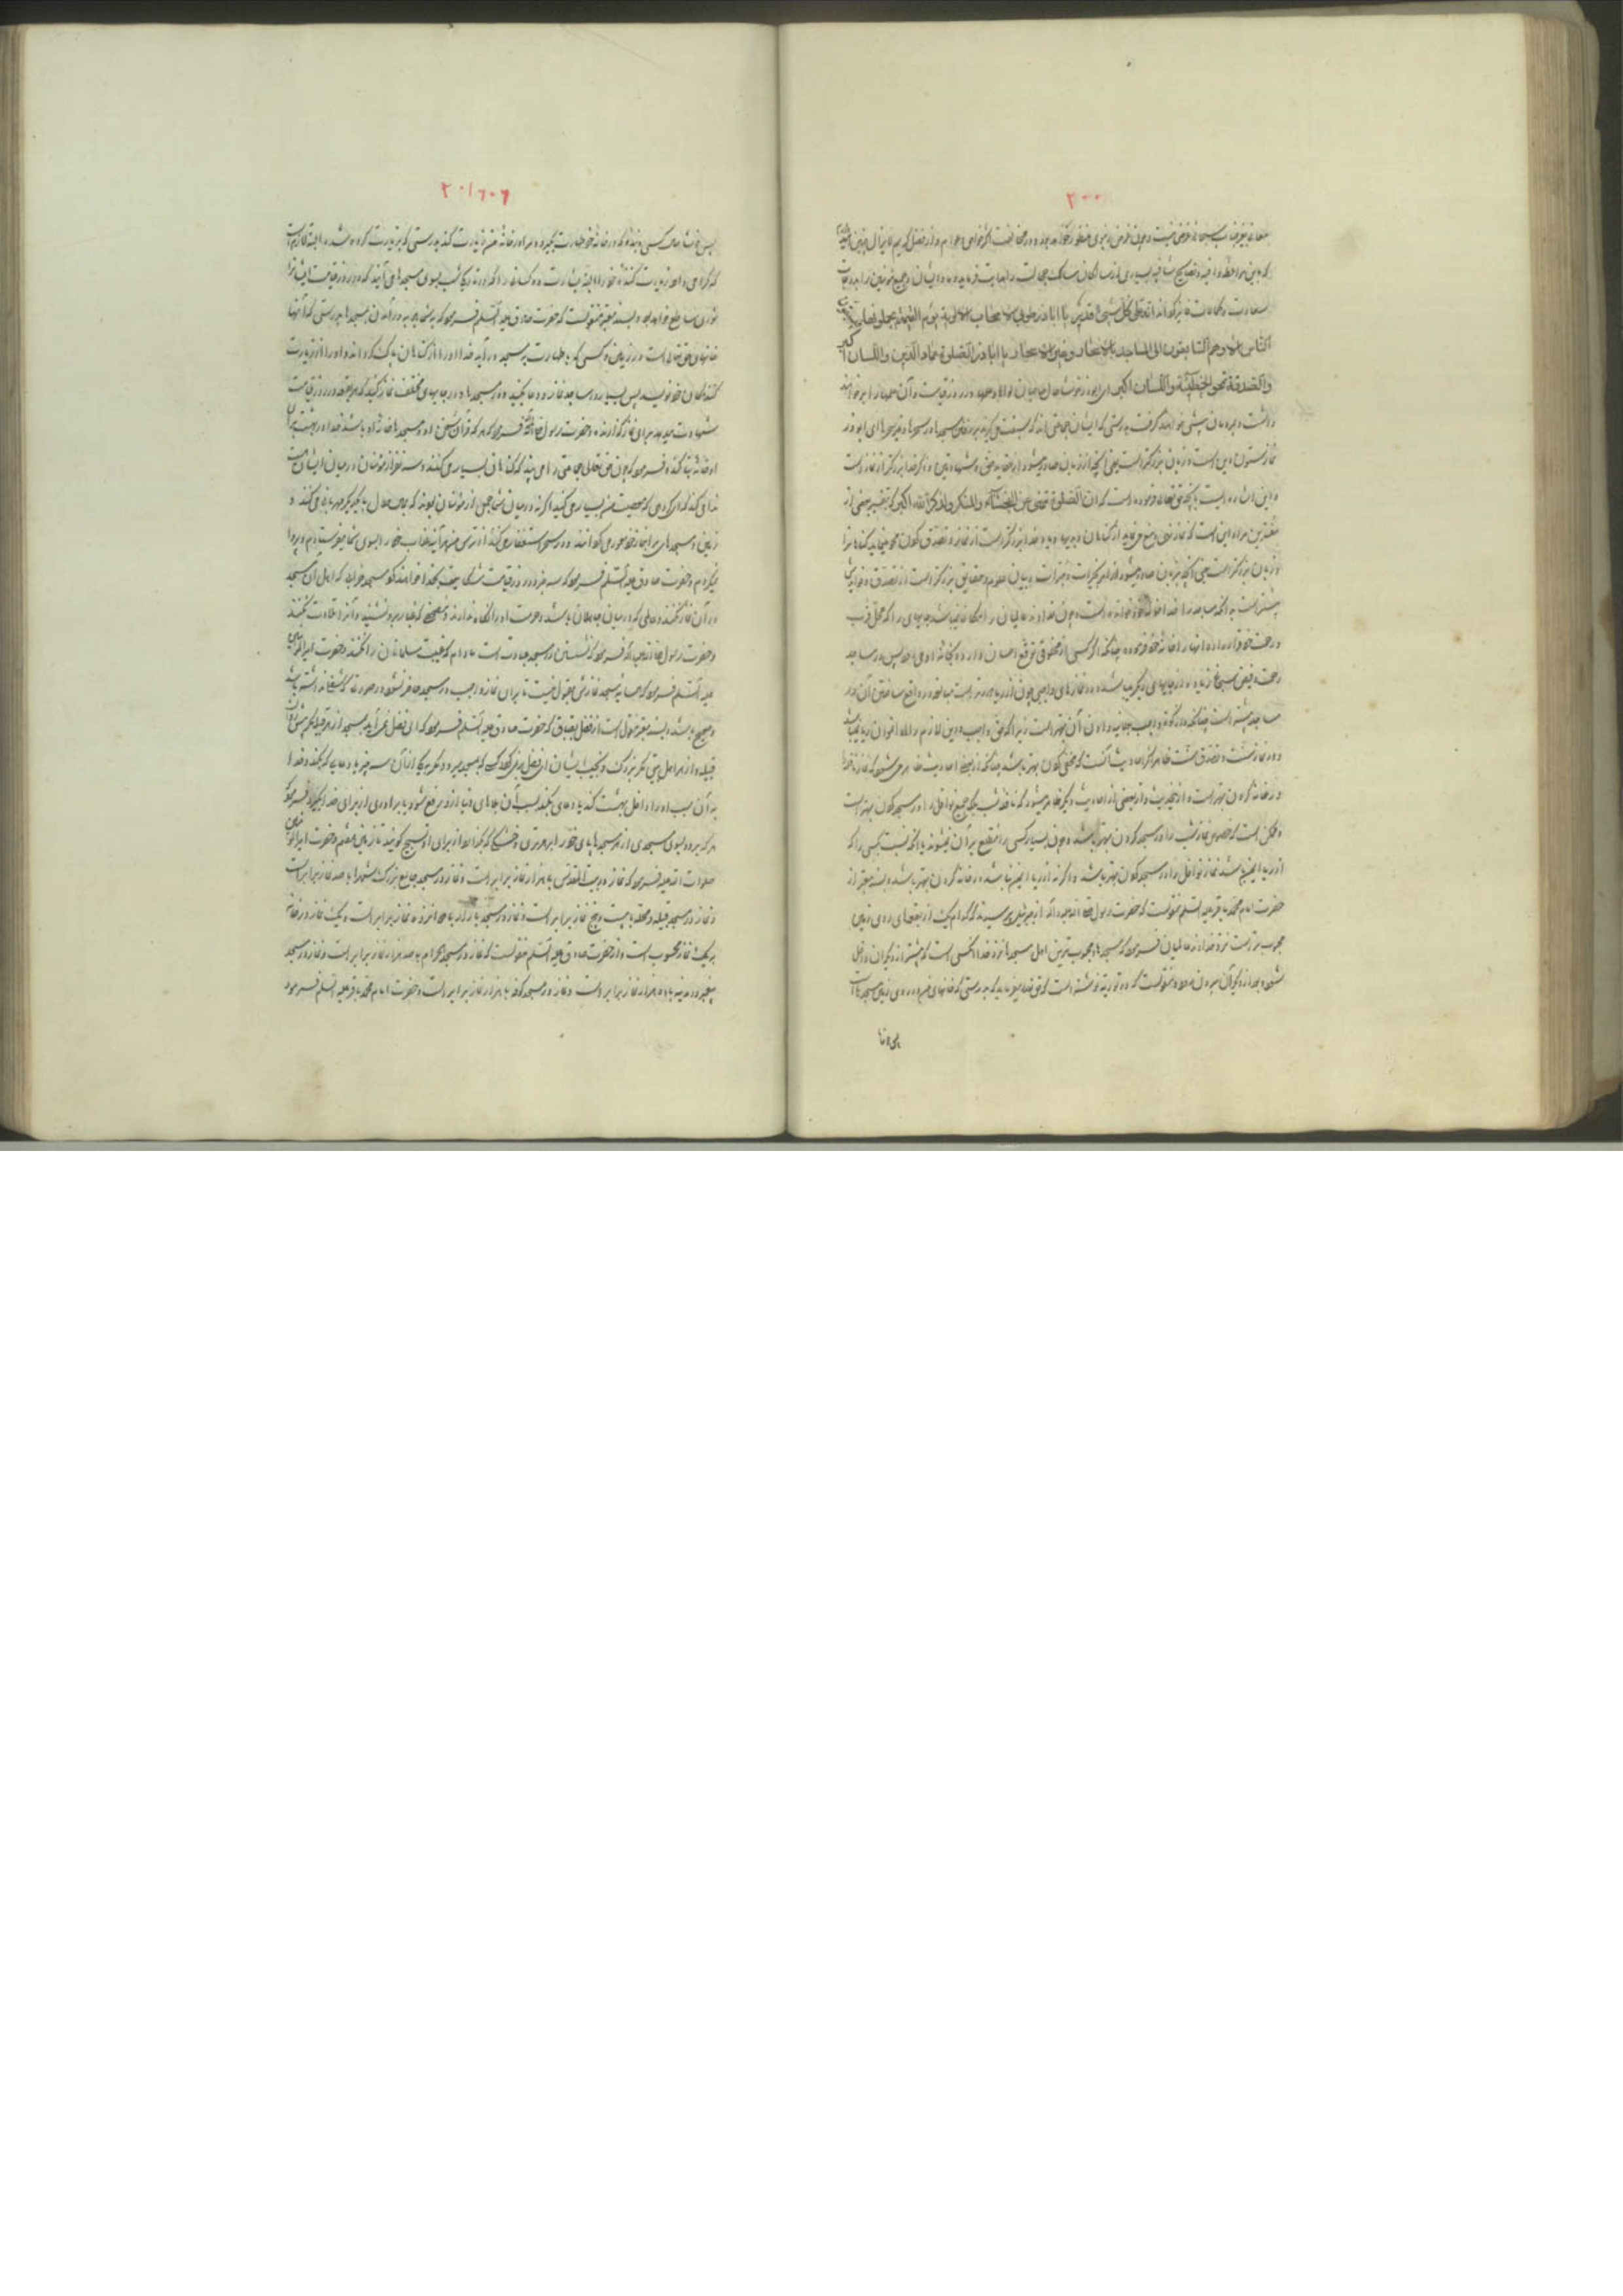 ۲۰۰
که باین مواعظ وافیه و نصایح شافیه بسیاری از سالکان مسالک جهالت را هدایت فرماید و ما و ایشان و جمیع مؤمنین را بدرجات
سعادت و کمالات فایز گرداند انه علی کل شیئ قدیر یا اباذر طوبی لاصحاب الالویة یوم القیمة یحملونها
الناس الا و هم السابقون الی المساجد بالاسحار و غیر الاسحار یا اباذر الصلوة عماد الدین واللسان اکبر
والصدقة تمحو الخطیئة واللسان اکبر ای ابوذر خوشا حال صاحبان لواها و علمها در روز قیامت و آن علمها را برخواهند
داشت و بر مردمان پیشی خواهند گرفت بدرستی که ایشان جماعتی اند که سبقت میگیرند برفتن مسجدها در سحرها و غیر سحرها ای ابوذر
نماز ستون دین است و زبان بزرگتر است یعنی آنچه از زبان صادر میشود از عقاید حق و شهادتین و ذکر خدا بزرگتر از نماز است
و این اشاره است بآنچه حق تعالی فرموده است که ان الصلوة تنهی عن الفحشاء والمنکر ولذکر الله اکبر که تفسیر بعضی از
مفسرین مراد این است که نماز نهی و منع می‌نماید از گناهان و بدیها و یاد خدا بزرگتر است از نماز و تصدق کردن محو مینماید گناه را
و زبان بزرگتر است یعنی آنچه بزبان صادر میشود از امر بخیرات و مبرات و بیان علوم و حقایق بزرگتر است از تصدق و ثوابش
بیشتر است بدانکه مساجد را خدا خانه خود خوانده است و چون خداوند عالمیان را مکان نمیباشد جایهای را که محل قرب
و رحمت خود قرار داده آنها را خانه خود فرموده چنانکه اگر کسی از مخلوقی توقع احسان دارد بخانه او میرود پس در مساجد
رحمت و فیض سبحانی زیاده از جایهای دیگر میباشد و در نمازهای واجبی چون از ریا دورتر است مبالغه در واقع ساختن آن در
مساجد بیشتر است چنانکه در زکوة واجب علانیه دادن آن بهتر است زیرا که حق واجب و دین لازم را ادا نمودن ریا نمیباشد
و در نماز سنت و تصدق سنت ظاهر اکثر احادیث آنست که مخفی کردن بهتر باشد چنانکه از بعضی احادیث ظاهر میشود که نماز نافله را
در خانه کردن بهتر است و از حدیث و از بعضی از احادیث دیگر ظاهر میشود که نافله شب بلکه جمیع نوافل را در مسجد کردن بهتر است
و ممکن است که خصوص نماز شب را در مسجد کردن بهتر باشد و چون بسیار کسی را مطلع بر آن نمیشوند یا آنکه نسبت بکسی را که
از ریا ایمن باشد نماز نوافل را در مسجد کردن بهتر باشد و اگر نه از ریا ایمن نباشد در خانه کردن بهتر باشد و بسند معتبر از
حضرت امام محمد باقر علیه السلم منقولست که حضرت رسول صلی الله علیه و آله از جبرئیل پرسید که کدام یک از بقعهای روی زمین
محبوب‌تر است نزد خداوند عالمیان فرمود که مسجدها و محبوب‌ترین اهل مسجدها نزد خدا آنکسی است که پیشتر از دیگران داخل
شود و بعد از دیگران بیرون رود و منقولست که در توریة نوشته است که حق تعالی میفرماید که بدرستی که خانهای من در روی زمین مسجدهاست
۲۰۱
پس خوشا حال کسی و بنده که در خانه خود طهارت بگیرد و مرا در خانه من زیارت کند بدرستی که بر زیارت کرده شده البته لازم است
که گرامی دارد زیارت کننده خود را البته بشارت ده کسانی را که در تاریکی شب بسوی مسجدها می‌آیند که در روز قیامت ایشانرا
نوری ساطع خواهد بود و بسند معتبر منقولست که حضرت صادق علیه السلم فرمود که بر شما باد به درآمدن بمسجدها بدرستی که آنها
خانهای حق تعالی است در زمین و کسی که با طهارت بمسجد درآید خدا او را از گناهان پاک گرداند و او را از زیارت
کنندگان خود نویسد پس بسیار در مساجد نماز و دعا بکنید و در مسجدها و در جایهای مختلف نماز کنید که هر بقعه در روز قیامت
شهادت میدهد برای نماز گذارنده و حضرت رسول صلی الله علیه فرمود که هر که قرآن سخن او و مسجدها خانه او باشد خدا در بهشت برای
او خانه بنا کند و فرمود که چون حق تعالی جماعتی را می‌بیند که گناهان بسیار میکنند و سه نفر از مؤمنان در میان ایشان هست
ندا میکند که ای گروهی که معصیت من بسیار میکنید اگر نه در میان شما جمعی از مؤمنان بودند که بمال حلال با یکدیگر مهربانی میکنند و
زمین و مسجدهای مرا بنماز خود معمور میگردانند و در سحر استغفار میکنند از ترس من هرآینه عذاب خود را بسوی شما میفرستادم و پروا
نمیکردم و حضرت صادق علیه السلم فرمود که سه چیز در روز قیامت شکایت بخدا خواهند کرد مسجد خرابی که اهل آن مسجد
در آن نماز نکنند و عالمی که در میان جاهلان باشد و حرمت او را نگاه ندارند و مصحفی که غبار بر او نشیند و آنرا تلاوت نکنند
و حضرت رسول صلی الله علیه و آله فرمود که نشستن در مسجد عبادت است مادام که غیبت مسلمانان را نکنند و حضرت امیرالمؤمنین
علیه السلم فرمود که همسایه مسجد نمازش مقبول نیست تا برای نمازهای واجب در مسجد حاضر نشود در صورتی که شغلی نداشته باشد
و صحیح باشد و بسند معتبر منقول است از فضل بقباق که حضرت صادق علیه السلم فرمود که ای فضل نمی‌آید بمسجد از هر قبیله مگر پیش‌رو آن
قبیله و از هر اهل بیتی مگر بزرگ و نجیب ایشان ای فضل برنمیگردد کسی که بمسجد میرود مگر بیکی از آن سه چیز یا دعایی که بکند و خدا
به آن سبب او را داخل بهشت کند یا دعای بکند بسبب آن بلاهای دنیا از او رفع شود یا برادری از برای خدا بگیرد و فرمود که
هر که برود بسوی مسجدی از مسجدها پای خود را بر هر تری و خشکی که گذارد از برای او تسبیح گویند تا زمین هفتم و حضرت امیرالمؤمنین
صلوات الله علیه فرمود که نماز در بیت المقدس با هزار نماز برابر است و نماز در مسجد جامع بزرگ شهر با صد نماز برابر است
و نماز در مسجد قبیله و محله با بیست و پنج نماز برابر است و نماز در مسجد بازار با دوازده نماز برابر است و یک نماز در خانه
بر یک نماز محسوب است و از حضرت صادق علیه السلم منقولست که نماز در مسجدالحرام با صد هزار نماز برابر است و نماز در مسجد
پیغمبر در مدینه با ده هزار نماز برابر است و نماز در مسجد کوفه با هزار نماز برابر است و حضرت امام محمد باقر علیه السلم فرمود